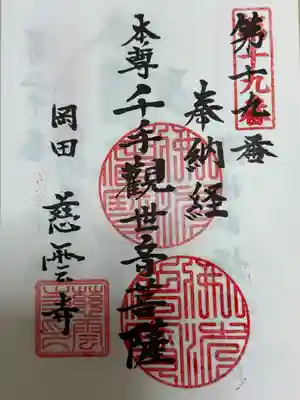 第十九番
奉納経
本尊千手觀世音菩薩
岡田 慈雲寺